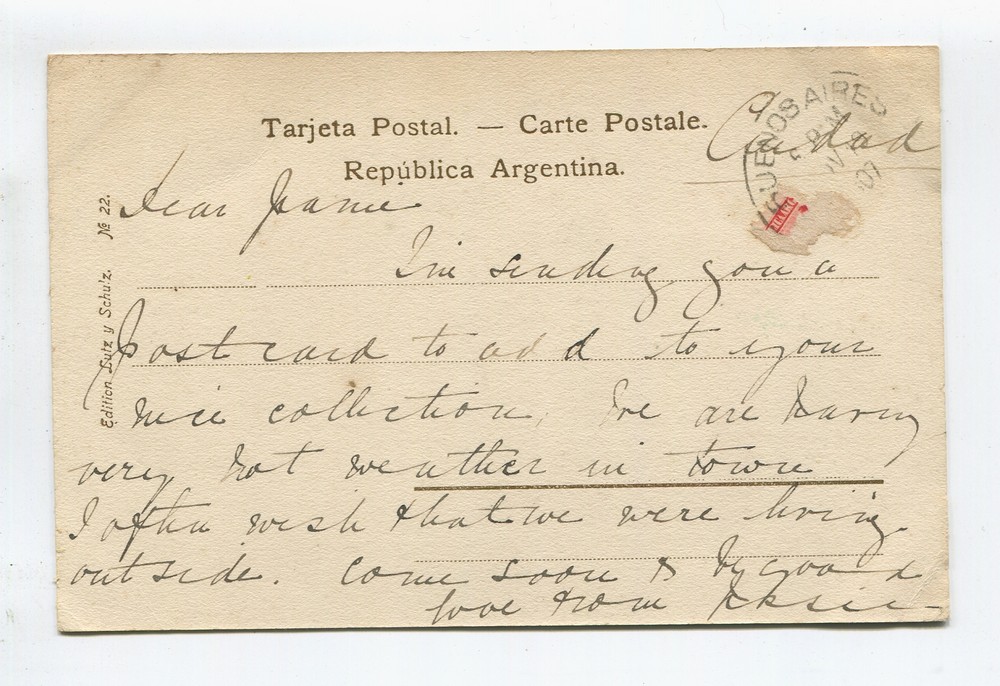 Tarjeta Postal. — Carte Postale.
República Argentina.
BUENOS AIRES
07
Ciudad
Edition Lutz y Schulz. № 22.
Dear
I'm sending you a
postcard to add to your
nice collection, We are having
very hot weather in town
I often wish that we were living
outside. Come soon &
love from